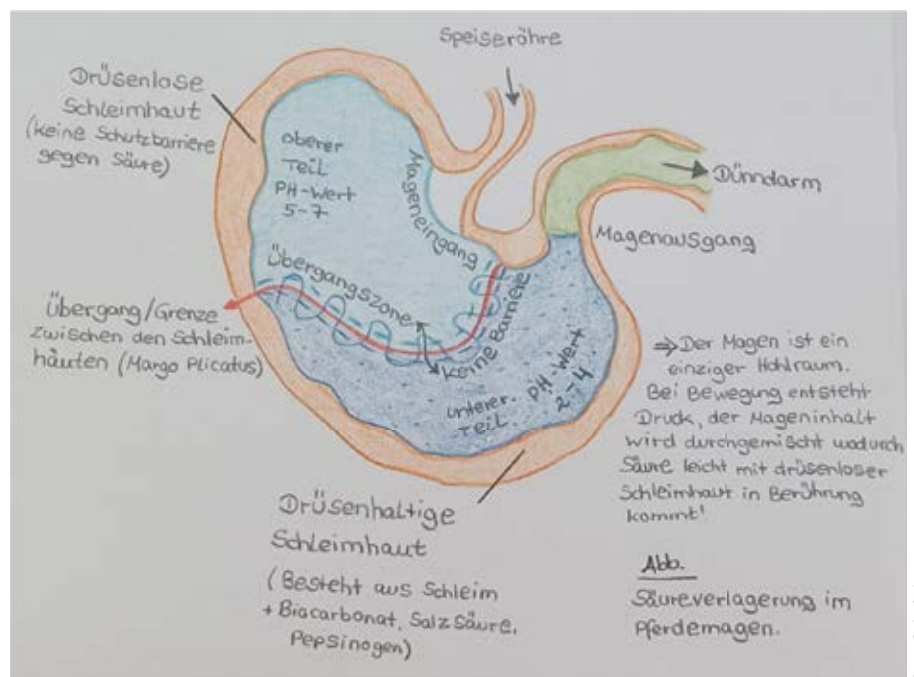 Speiseröhre
Drüsenlose
Schleimhaut
(keine Schutzbarriere
gegen Säure)
oberer
Teil
PH-Wert
5-7
Mageneingang
Dünndarm
Magenausgang
Übergangszone
keine Barriere
Übergang/Grenze
zwischen den Schleim-
häuten (Margo Plicatus)
unterer
Teil
PH-Wert
2-4
⇒ Der Magen ist ein
einziger Hohlraum.
Bei Bewegung entsteht
Druck, der Mageninhalt
wird durchgemischt wodurch
Säure leicht mit drüsenloser
Schleimhaut in Berührung
kommt!
Drüsenhaltige
Schleimhaut
(Besteht aus Schleim
+ Biacarbonat, Salzsäure,
Pepsinogen)
Abb.
Säureverlagerung im
Pferdemagen.